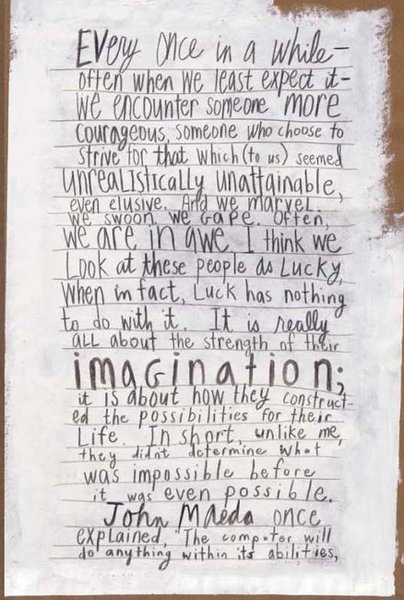 EVery Once in a while—
often when we least expect it—
we encounter someone more
courageous, someone who choose to
strive for that which (to us) seemed
unrealistically unattainable,
even elusive. And we marvel.
we swoon. we Gape. Often,
we are in awe. I think we
Look at these people as Lucky,
When in fact, Luck has nothing
to do with it. It is really
all about the strength of their
imagination;
it is about how they construct-
ed the possibilities for their
Life. In short, unlike me,
they didnt determine what
was impossible before
it was even possible.
John Maeda once
explained, "The computer will
do anything within its abilities,